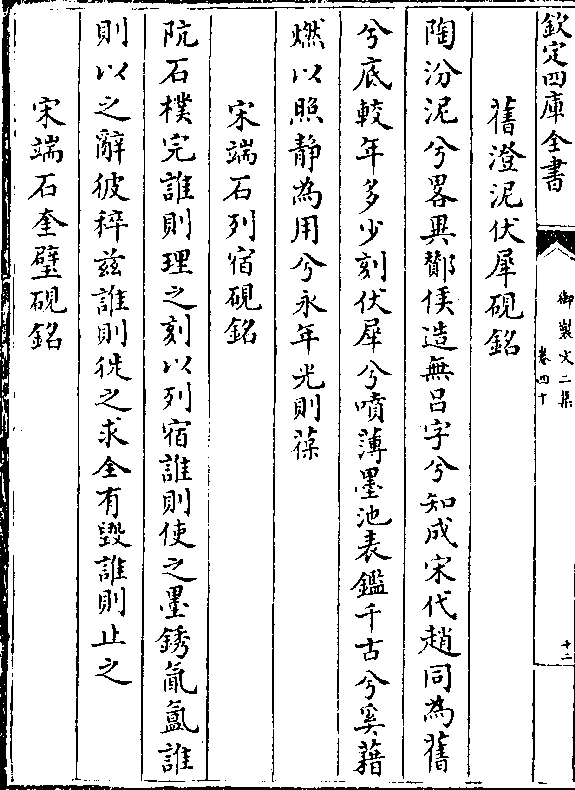 欽定四庫全書
御製文二集
卷四十
十二
舊澄泥伏犀硯銘
陶汾泥兮畧異鄼侯造無呂字兮知成宋代趙同為舊
兮底較年多少刻伏犀兮噴薄墨池表鑑千古兮奚藉
燃以照静為用兮永年光則葆
宋端石列宿硯銘
阬石樸完誰則理之刻以列宿誰則使之墨銹氤氲誰
則以之辭彼稡兹誰則徙之求全有毀誰則止之
宋端石奎璧硯銘